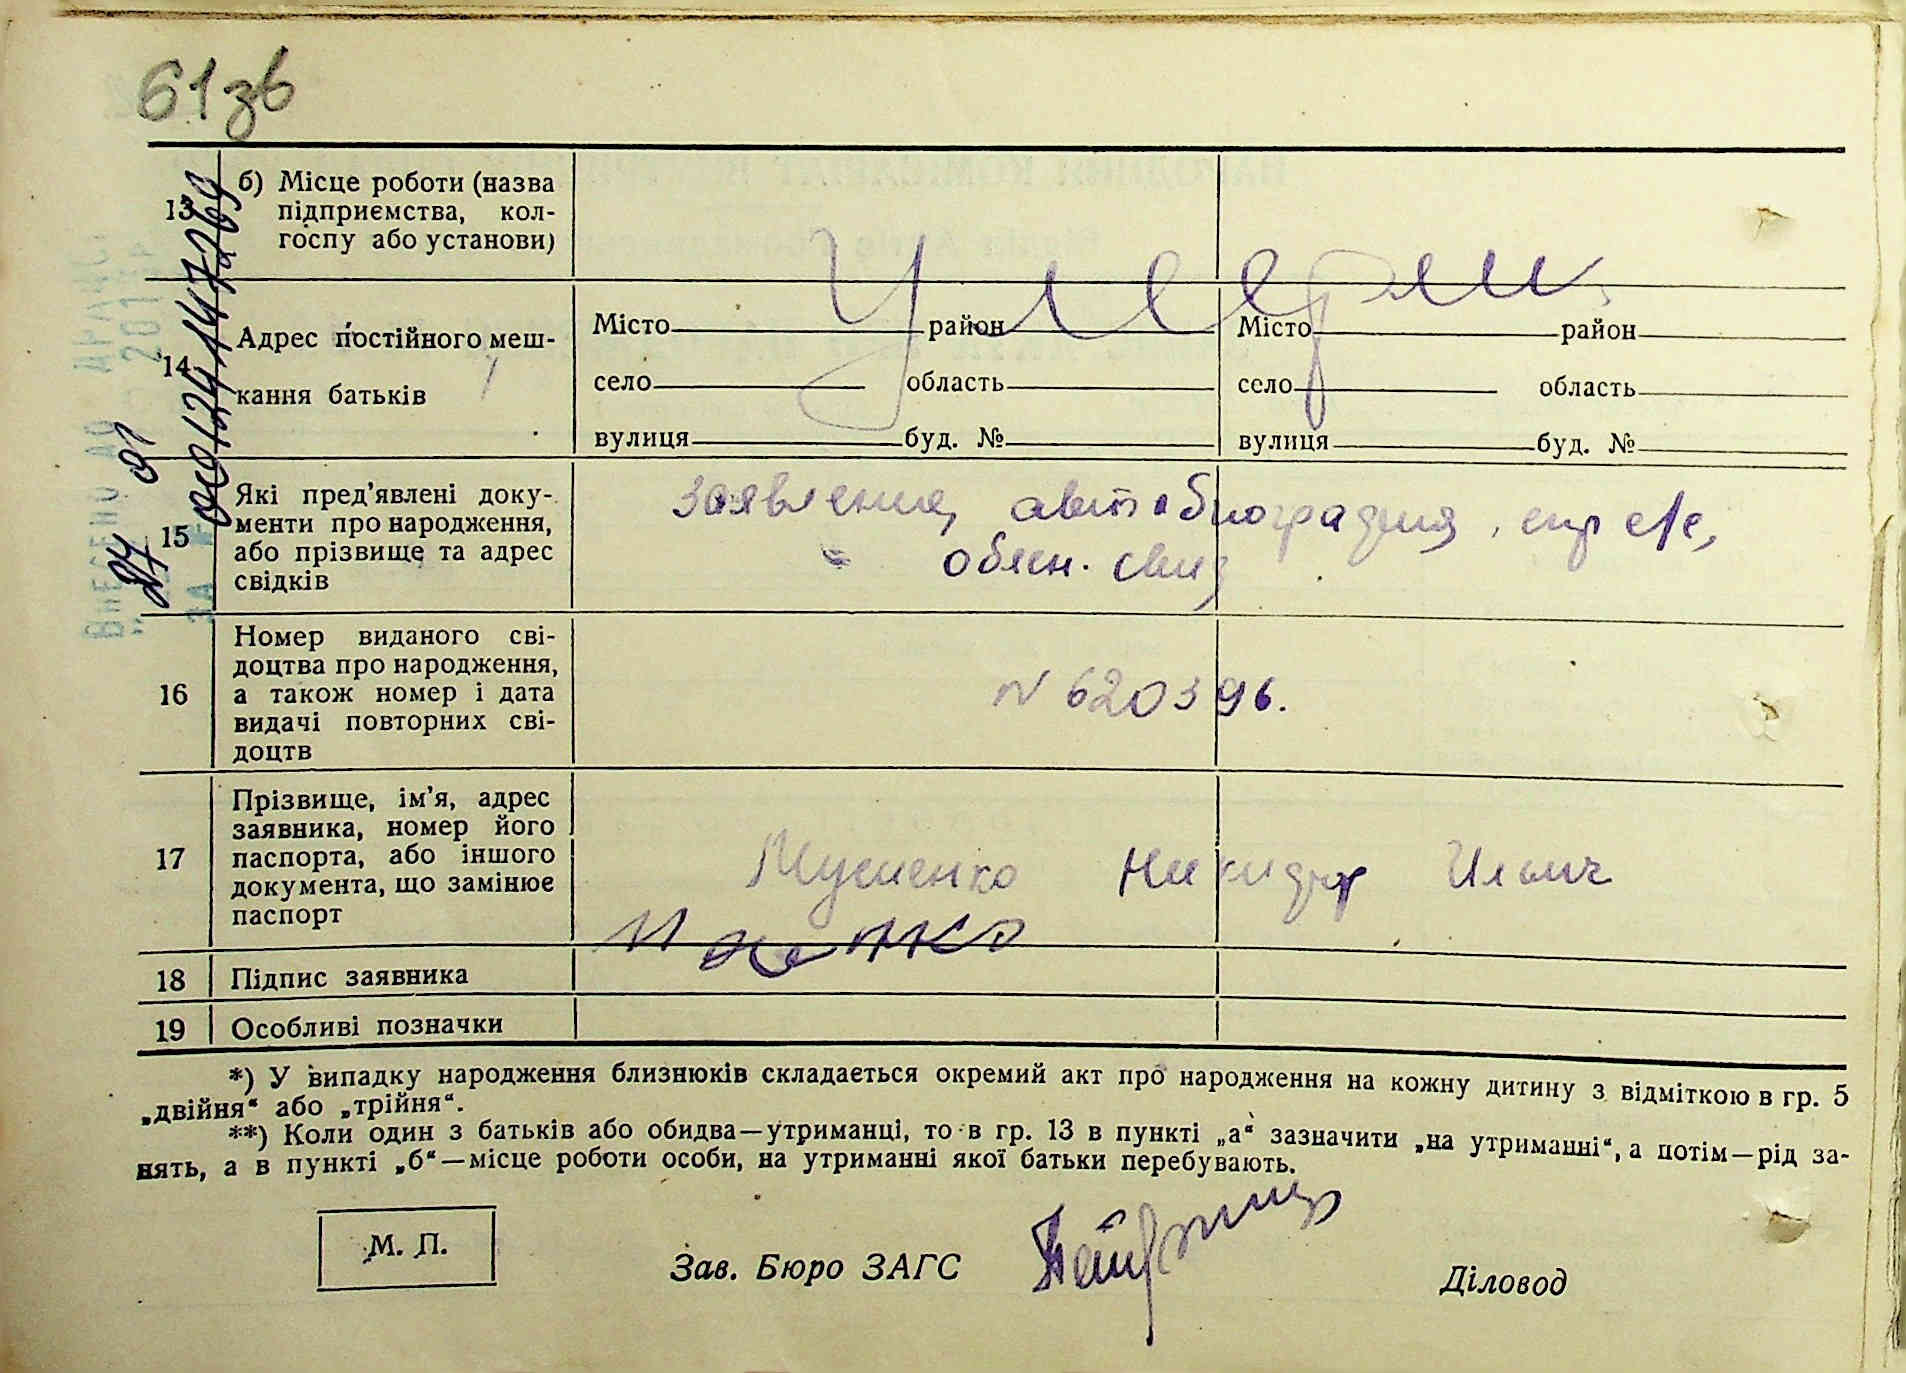 61зв
13
б) Місце роботи (назва
підприємства, кол-
госпу або установи)
Умерли
14
Адрес постійного меш-
кання батьків
Місто район
село область
вулиця буд. №
Місто район
село область
вулиця буд. №
15
Які пред'явлені доку-
менти про народження,
або прізвище та адрес
свідків
заявление, автобиография,
16
Номер виданого сві-
доцтва про народження,
а також номер і дата
видачі повторних сві-
доцтв
N 620396.
17
Прізвище, ім'я, адрес
заявника, номер його
паспорта, або іншого
документа, що замінює
паспорт
Мусиенко Никифор Ильич
18 Підпис заявника
19 Особливі позначки
*) У випадку народження близнюків складається окремий акт про народження на кожну дитину з відміткою в гр. 5
„двійня“ або „трійня“.
**) Коли один з батьків або обидва—утриманці, то в гр. 13 в пункті „а“ зазначити „на утриманні“, а потім—рід за-
нять, а в пункті „б“—місце роботи особи, на утриманні якої батьки перебувають.
М. П.
Зав. Бюро ЗАГС
Діловод